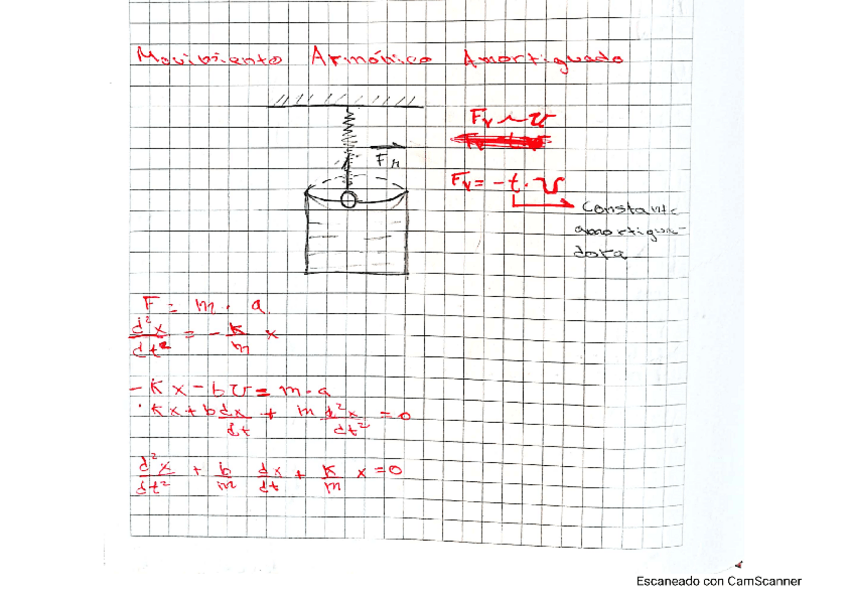 Movimiento Armónico Amortiguado
Fv ~ v
Fv = -t · v
Constante
amortigua-
dora
F = m · a
d²x/dt² = - k/m x
-Kx - bv = m · a
Kx + b dx/dt + m d²x/dt² = 0
d²x/dt² + b/m dx/dt + k/m x = 0
Escaneado con CamScanner